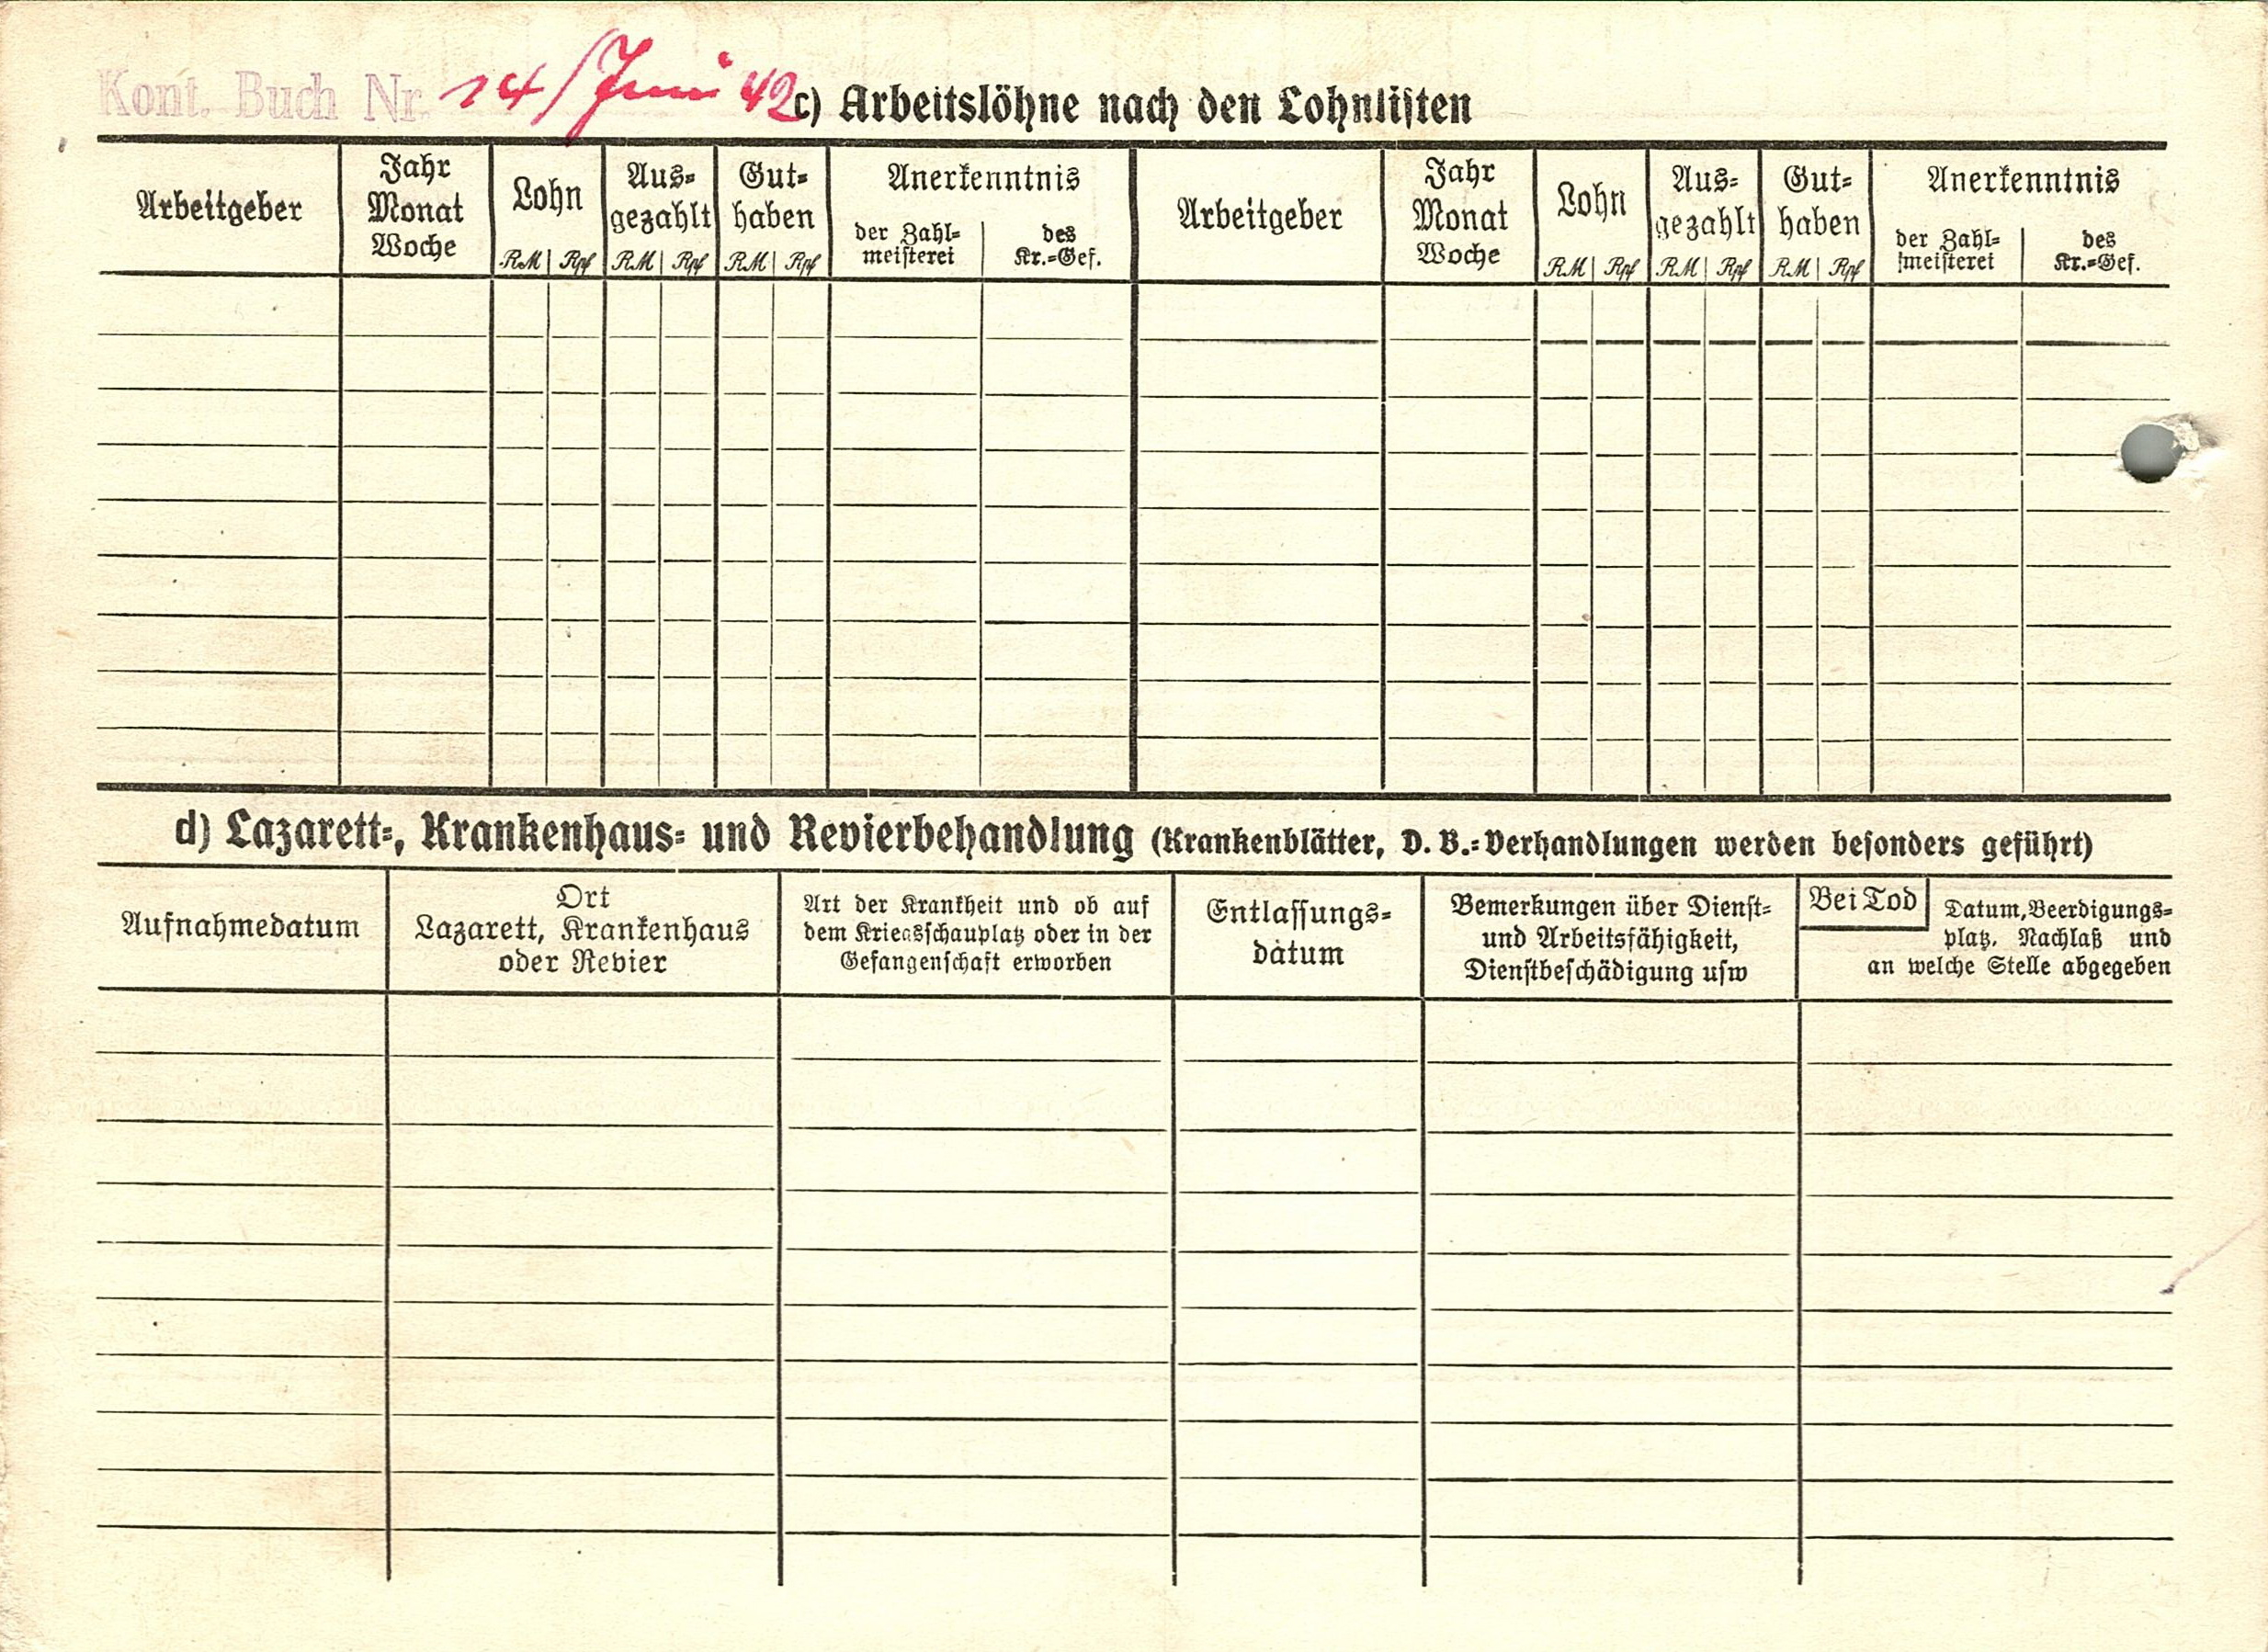 Kont. Buch Nr. 14/Juni 42
c) Arbeitslöhne nach den Lohnlisten
Arbeitgeber
Jahr
Monat
Woche
Lohn
RM Rpf
Aus-
gezahlt
RM Rpf
Gut-
haben
RM Rpf
Anerkenntnis
der Zahl-
meisterei
des
Kr.-Gef.
Arbeitgeber
Jahr
Monat
Woche
Lohn
RM Rpf
Aus-
gezahlt
RM Rpf
Gut-
haben
RM Rpf
Anerkenntnis
der Zahl-
meisterei
des
Kr.-Gef.
d) Lazarett-, Krankenhaus- und Revierbehandlung (Krankenblätter, D. B.-Verhandlungen werden besonders geführt)
Aufnahmedatum
Ort
Lazarett, Krankenhaus
oder Revier
Art der Krankheit und ob auf
dem Kriegsschauplatz oder in der
Gefangenschaft erworben
Entlassungs-
datum
Bemerkungen über Dienst-
und Arbeitsfähigkeit,
Dienstbeschädigung usw
Bei Tod
Datum, Beerdigungs-
platz, Nachlaß und
an welche Stelle abgegeben